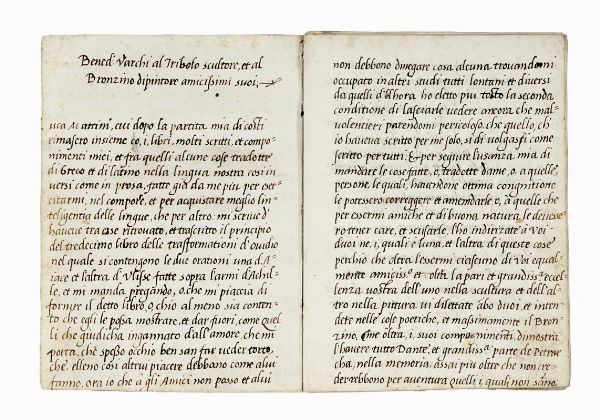 Bened. Varchi al Tribolo scultore, et al
Bronzino dipintore amicissimi suoi,
uca Martini, cui dopo la partita mia di costi
rimasero insieme co, i, libri, molti scritti, et compo-
nimenti miei, et fra quelli alcune cose tradotte
di Greco et di latino nella lingua nostra cosi in
versi come in prosa, fatte già da me piu per eser-
citarmi, nel comporre, et per acquistare meglio l'in-
teligentia delle lingue, che per altro: mi scrive d'
havere tra esse ritrovato, et trascritto il principio
del tredecimo libro delle trasformationi d'Ovidio
nel quale si contengono le due orationi una d'A-
iace et l'altra d'Ulisse fatte sopra l'armi d'Achil-
le, et mi manda pregando, o, che mi piaccia di
fornire il detto libro, o, chio al meno sia conten-
to che egli le possa mostrare, et dar fuori, come quel
li che giudicha ingannato dall'amore, che mi
porta, che spesso occhio ben san fa veder torto,
che, elleno cosi altrui piacere debbano come a lui
fanno. ora io che à gli Amici non posso et a lui
non debbono dinegare cosa alcuna, trovandomi
occupato in altri studi tutti lontani et diversi
da quelli d'allhora ho eletto piu tosto la seconda
conditione di lasciarle vedere ancora che mal-
volentieri parendomi pericoloso, che quello, ch
io haveva scritto per me solo, si divolgasse come
scritto per tutti. Et per seguire l'usanza mia di
mandare le cose fatte, o, tradotte da me, o, a quelle
persone, le quali, havendone ottima cognitione
le potessero correggere et amendarle, o, a quelle che
per essermi amiche et di buona natura, le devesse-
ro tener care, et scusarle, l'ho indirizate à voi
duoi ne, i, quali è l'una et l'altra di queste cose
perchio che oltra l'essermi ciascuno di voi equal-
mente amiciss.o et oltra la pari et grandiss.a eccel-
lenza vostra dell'uno nella scultura et dell'al-
tro nella pittura vi dilettate abo duoi et inten
dete nelle cose poetiche, et massimamente il Bron-
zino, che oltra, i, suoi componimenti, dimostra
l'havere tutto Dante, et grandiss.a parte de Petrar
cha, nella memoria, assai piu oltre che non cre-
derrebbono per aventura quelli, i, quali non sano,